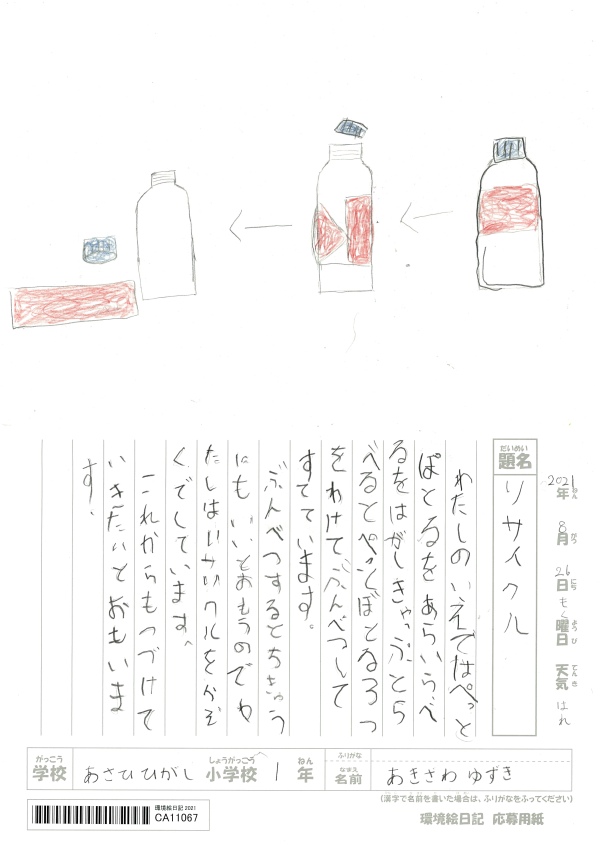 2021年 8月 26日 もく曜日 天気 はれ
ねん がつ にち ようび てんき
だいめい
題名 リサイクル
わたしのいえではぺっと
ぽとるをあらいらべ
るをはがしきゃっぷとら
べるとぺっとぼとる3つ
をわけてぶんべつして
すてています。
ぶんべつするとちきゅう
にもいいとおもうのでわ
たしはリサイクルをかぞ
くでしています。
これからもつづけて
いきたいとおもいま
す。
がっこう しょうがっこう ねん ふりがな
学校 あさひひがし 小学校 1 年 なまえ 名前 あきさわ ゆずき
(漢字で名前を書いた場合は、ふりがなをふってください)
環境絵日記 2021
CA11067
環境絵日記 応募用紙